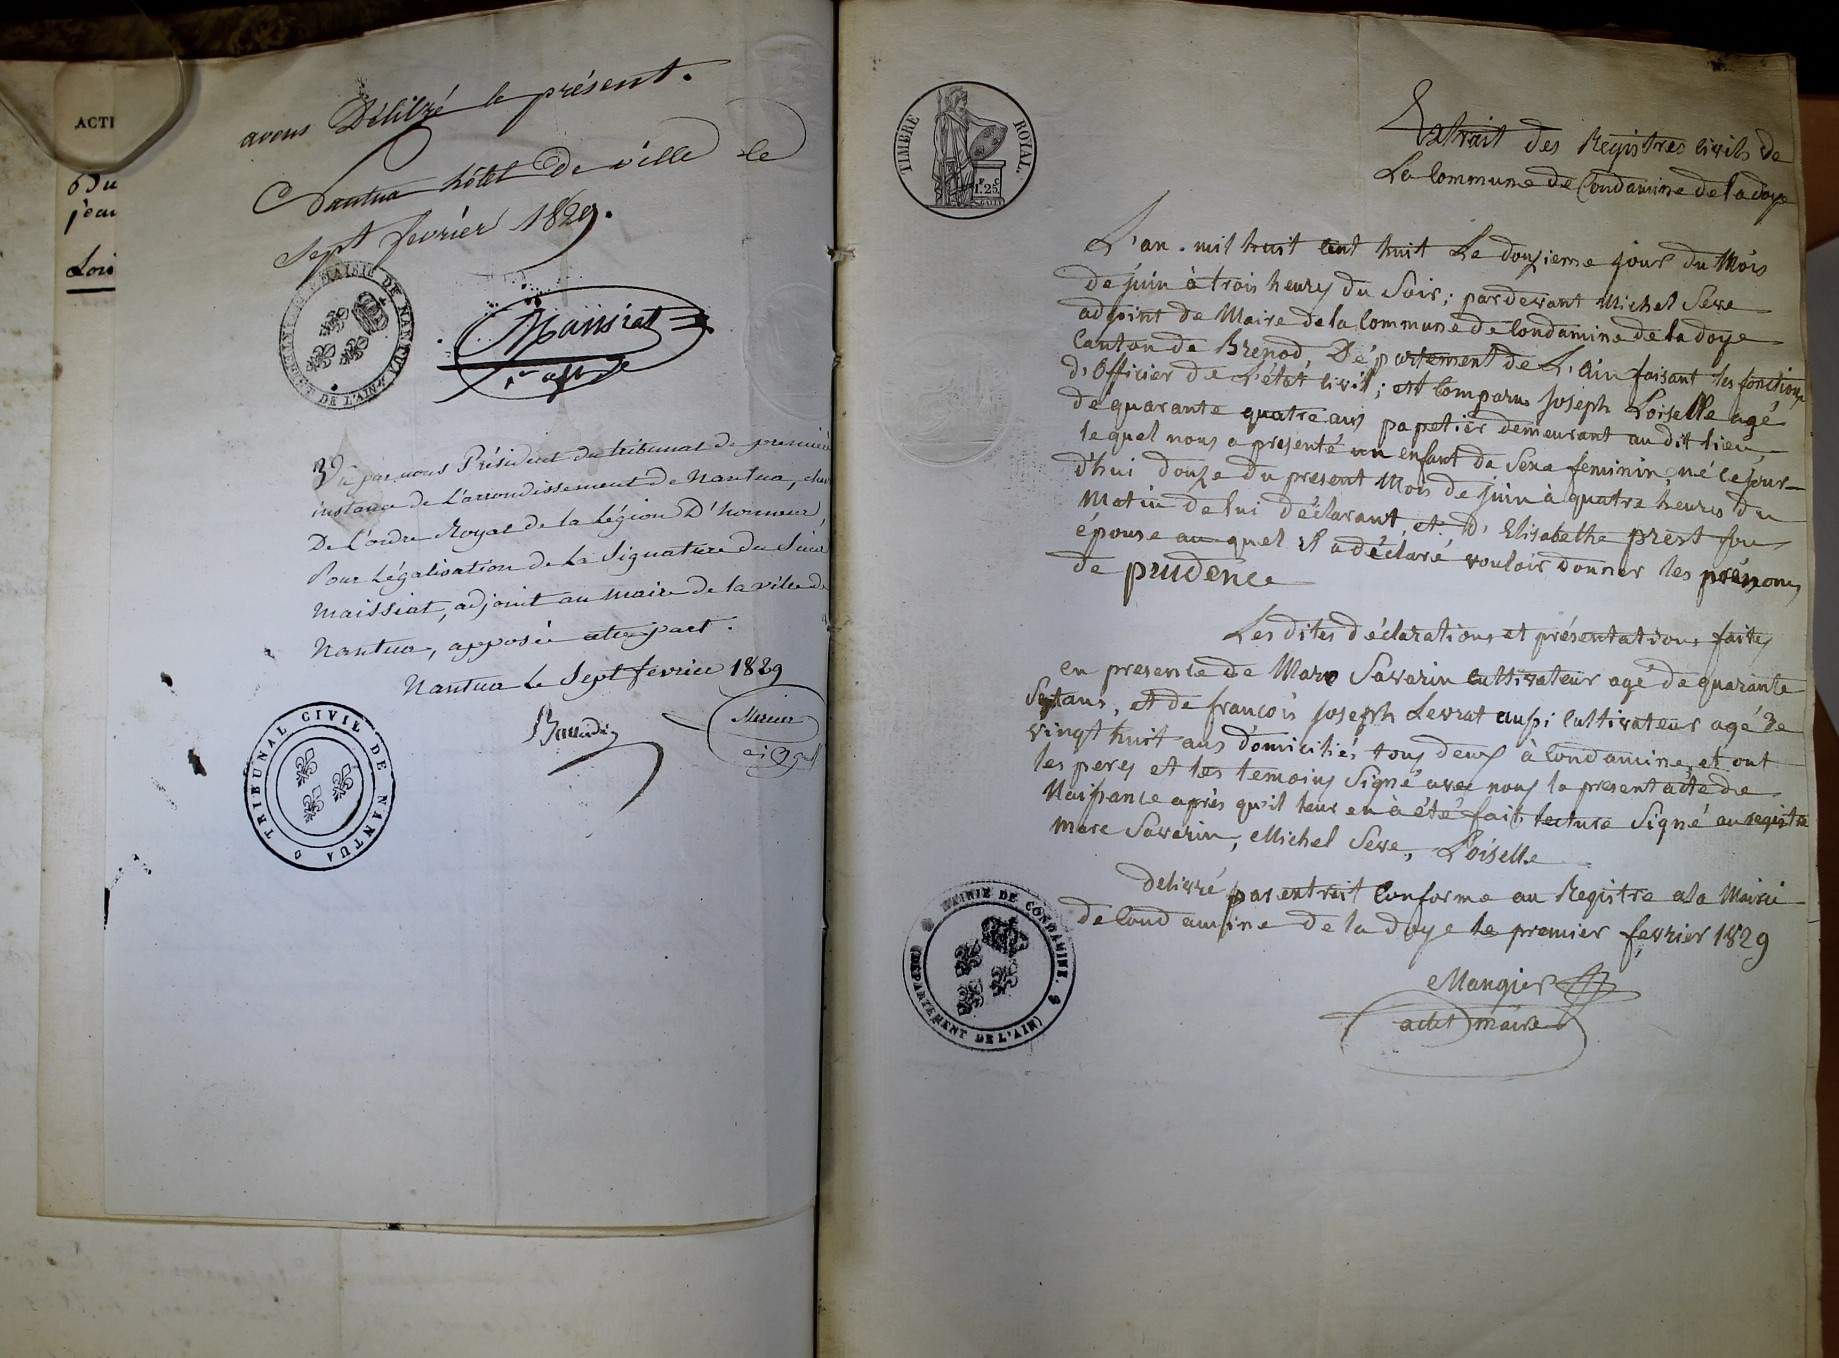 ACTI
6 Du
jean
Lois
avons Délivré le présent.
Nantua hôtel De ville le
Sept février 1829.
MAIRIE DE NANTUA
DE L'AIN
Maissiat
1er adjt
Vu par nous Président du tribunal de première
instance de L'arrondissement de Nantua, chev
De L'ordre Royal de la Légion D'honneur,
Pour Légalisation de La Signature du Sieur
Maissiat, adjoint au Maire de la ville de
Nantua, apposée autre part.
Nantua Le Sept fevrier 1829
Mercier
TRIBUNAL CIVIL DE NANTUA
TIMBRE ROYAL
1F. 25C
Extrait des Registres civils de
La Commune de Condamine de la doye
L'an. mil huit cent huit Le douzieme jour du Mois
de juin à trois heures du Soir; pardevant Michel Seve
adjoint de Maire de la Commune de Condamine de la doye
Canton de Brenod, Département de L'Ain faisant les fonctions
d'Officier de L'état civil; est Comparu Joseph Loiselle agé
de quarante quatre ans papetier demeurant au dit lieu,
lequel nous a presenté un enfant de Sexe feminin, né ce jour
d'hui douze du present Mois de juin à quatre heures du
Matin de lui déclarant, et D' Elisabethe prest sou
epouse auquel il a déclaré vouloir donner les prénoms
de prudence
Les dites déclarations et présentations faites
en presence de Marc Savarin cultivateur agé de quarante
Sept ans, et de francois Joseph Levrat aussi Cultivateur agé de
vingt huit ans domiciliés tous deux à Condamine, et ont
les peres et les temoins Signé avec nous le present acte de
Naissance après qu'il leur en à été fait lecture Signé au registre
Marc Savarin, Michel Seve, Loiselle
delivré par extrait Conforme au Registre a la Mairie
de Condamine de la doye le premier fevrier 1829
Mangier
adct maire
MAIRIE DE CONDAMINE.
(DEPARTEMENT DE L'AIN)